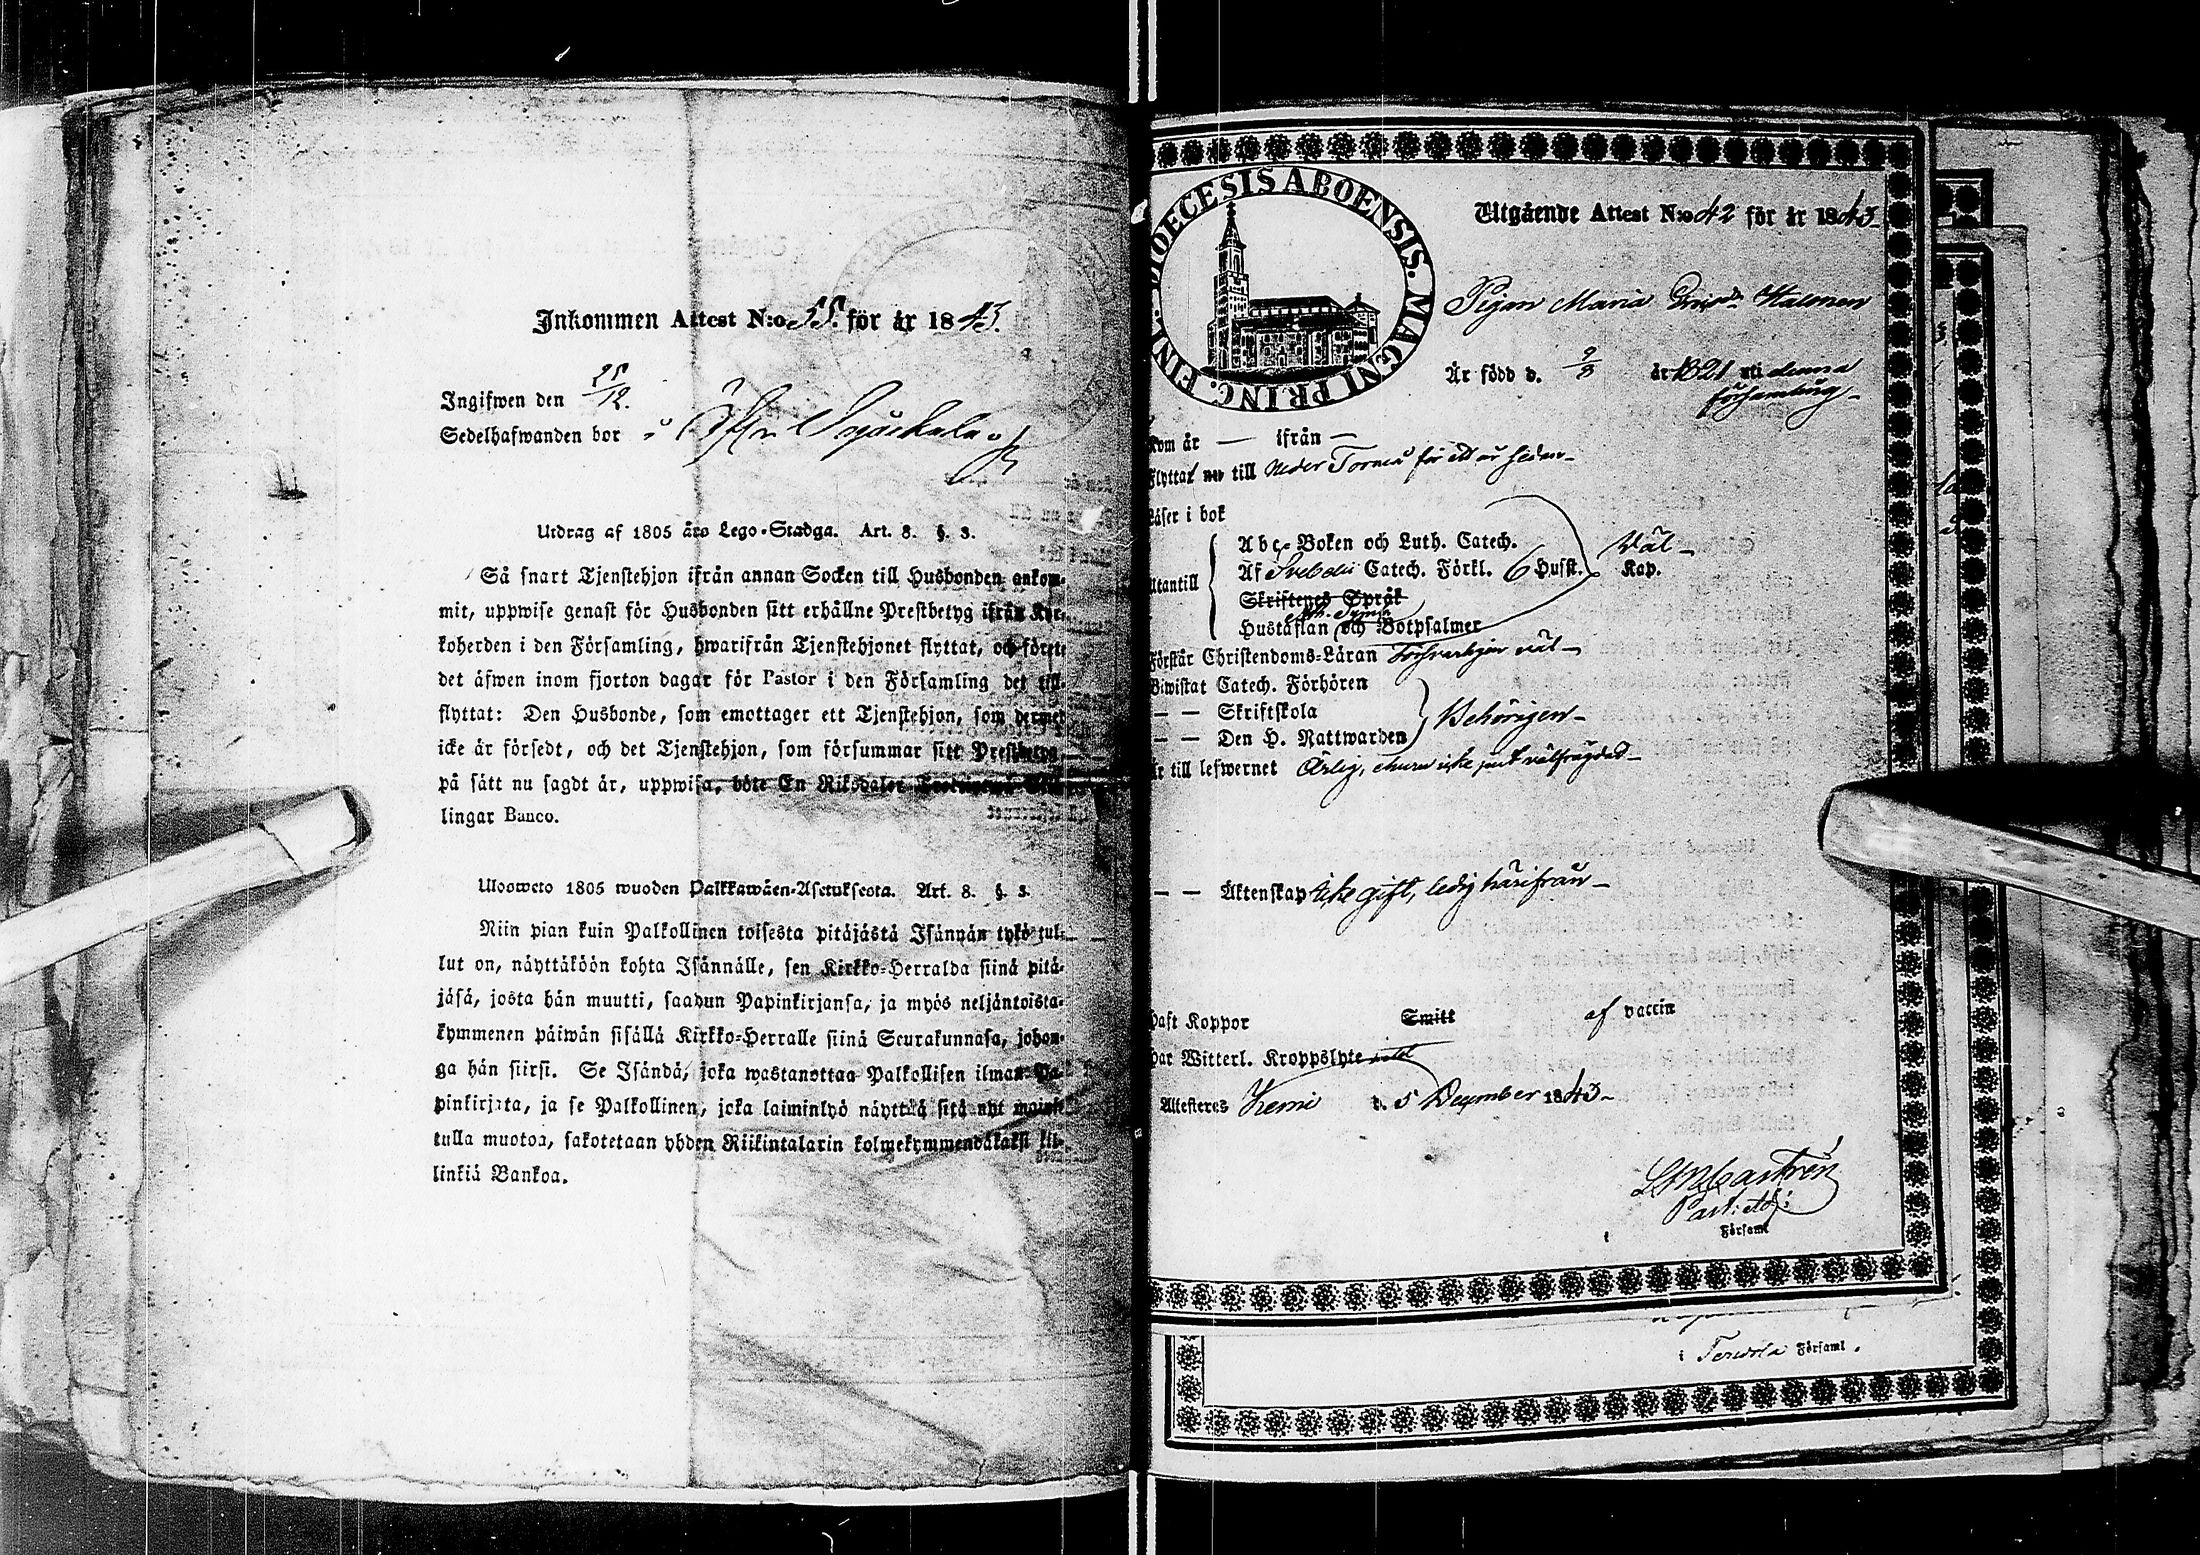 Inkommen Attest N:o 55. för år 1843.
Ingifwen den 25/12.
Sedelhafwanden bor i
Utdrag af 1805 års Lego-Stadga. Art. 8. §. 3.
Så snart Tjenstehjon ifrån annan Socken till Husbonden ankom-
mit, uppwise genast för Husbonden sitt erhållne Prestbetyg ifrån Kyr-
koherden i den Församling, hwarifrån Tjenstehjonet flyttat, och förete
det äfwen inom fjorton dagar för Pastor i den Församling det till-
flyttat: Den Husbonde, som emottager ett Tjenstehjon, som dermed
icke är försedt, och det Tjenstehjon, som försummar sitt Prestbetyg
på sätt nu sagdt är, uppwisa, böte En Riksdaler
lingar Banco.
Ulosweto 1805 wuoden Palkkawäen-Asetuksesta. Art. 8. §. 3.
Niin pian kuin Palkollinen toisesta pitäjästä Isännän tykö tul-
lut on, näyttäköön kohta Isännälle, sen Kirkko-Herralda siinä pitä-
jäsä, josta hän muutti, saadun Papinkirjansa, ja myös neljäntoista-
kymmenen päiwän sisällä Kirkko-Herralle siinä Seurakunnasa, johon-
ga hän siirsi. Se Isändä, joka wastanottaa Palkollisen ilman Pa-
pinkirjata, ja se Palkollinen, joka laiminlyö näyttää sitä nyt mainit-
tulla muotoa, sakotetaan yhden Riikintalarin kolmekymmendäkaksi kil-
linkiä Bankoa.
DIOECESIS ABOENSIS. MAGNI PRINC. FINL.
Utgående Attest N:o 42 för år 1843
Pigan Maria Halonen
Är född d. 9/8 år 1821 uti denna
församling
Kom år — ifrån —
Flyttat nu till Neder Torneå för ett år sedan
Läser i bok
Abc-Boken och Luth. Catech. Väl
Utantill Af Svebelii Catech. Förkl. 6 Husst. Kap.
Skriftenes Språk
Ath. Symb.
Hustaflan och Botpsalmer
Förstår Christendoms-Läran Försvarligen väl
Biwistat Catech. Förhören
— — Skriftskola Behörigen
— — Den H. Nattwarden
Är till lefwernet Ärlig, ehuru icke just välfrägdad
— — Äktenskap Icke gift, ledig härifrån
Haft Koppor Smitt af vaccin
Har Witterl. Kroppslyte intet
Attesteras Kemi d. 5 December 1843
Castrén
Församl
i Terwola Församl.